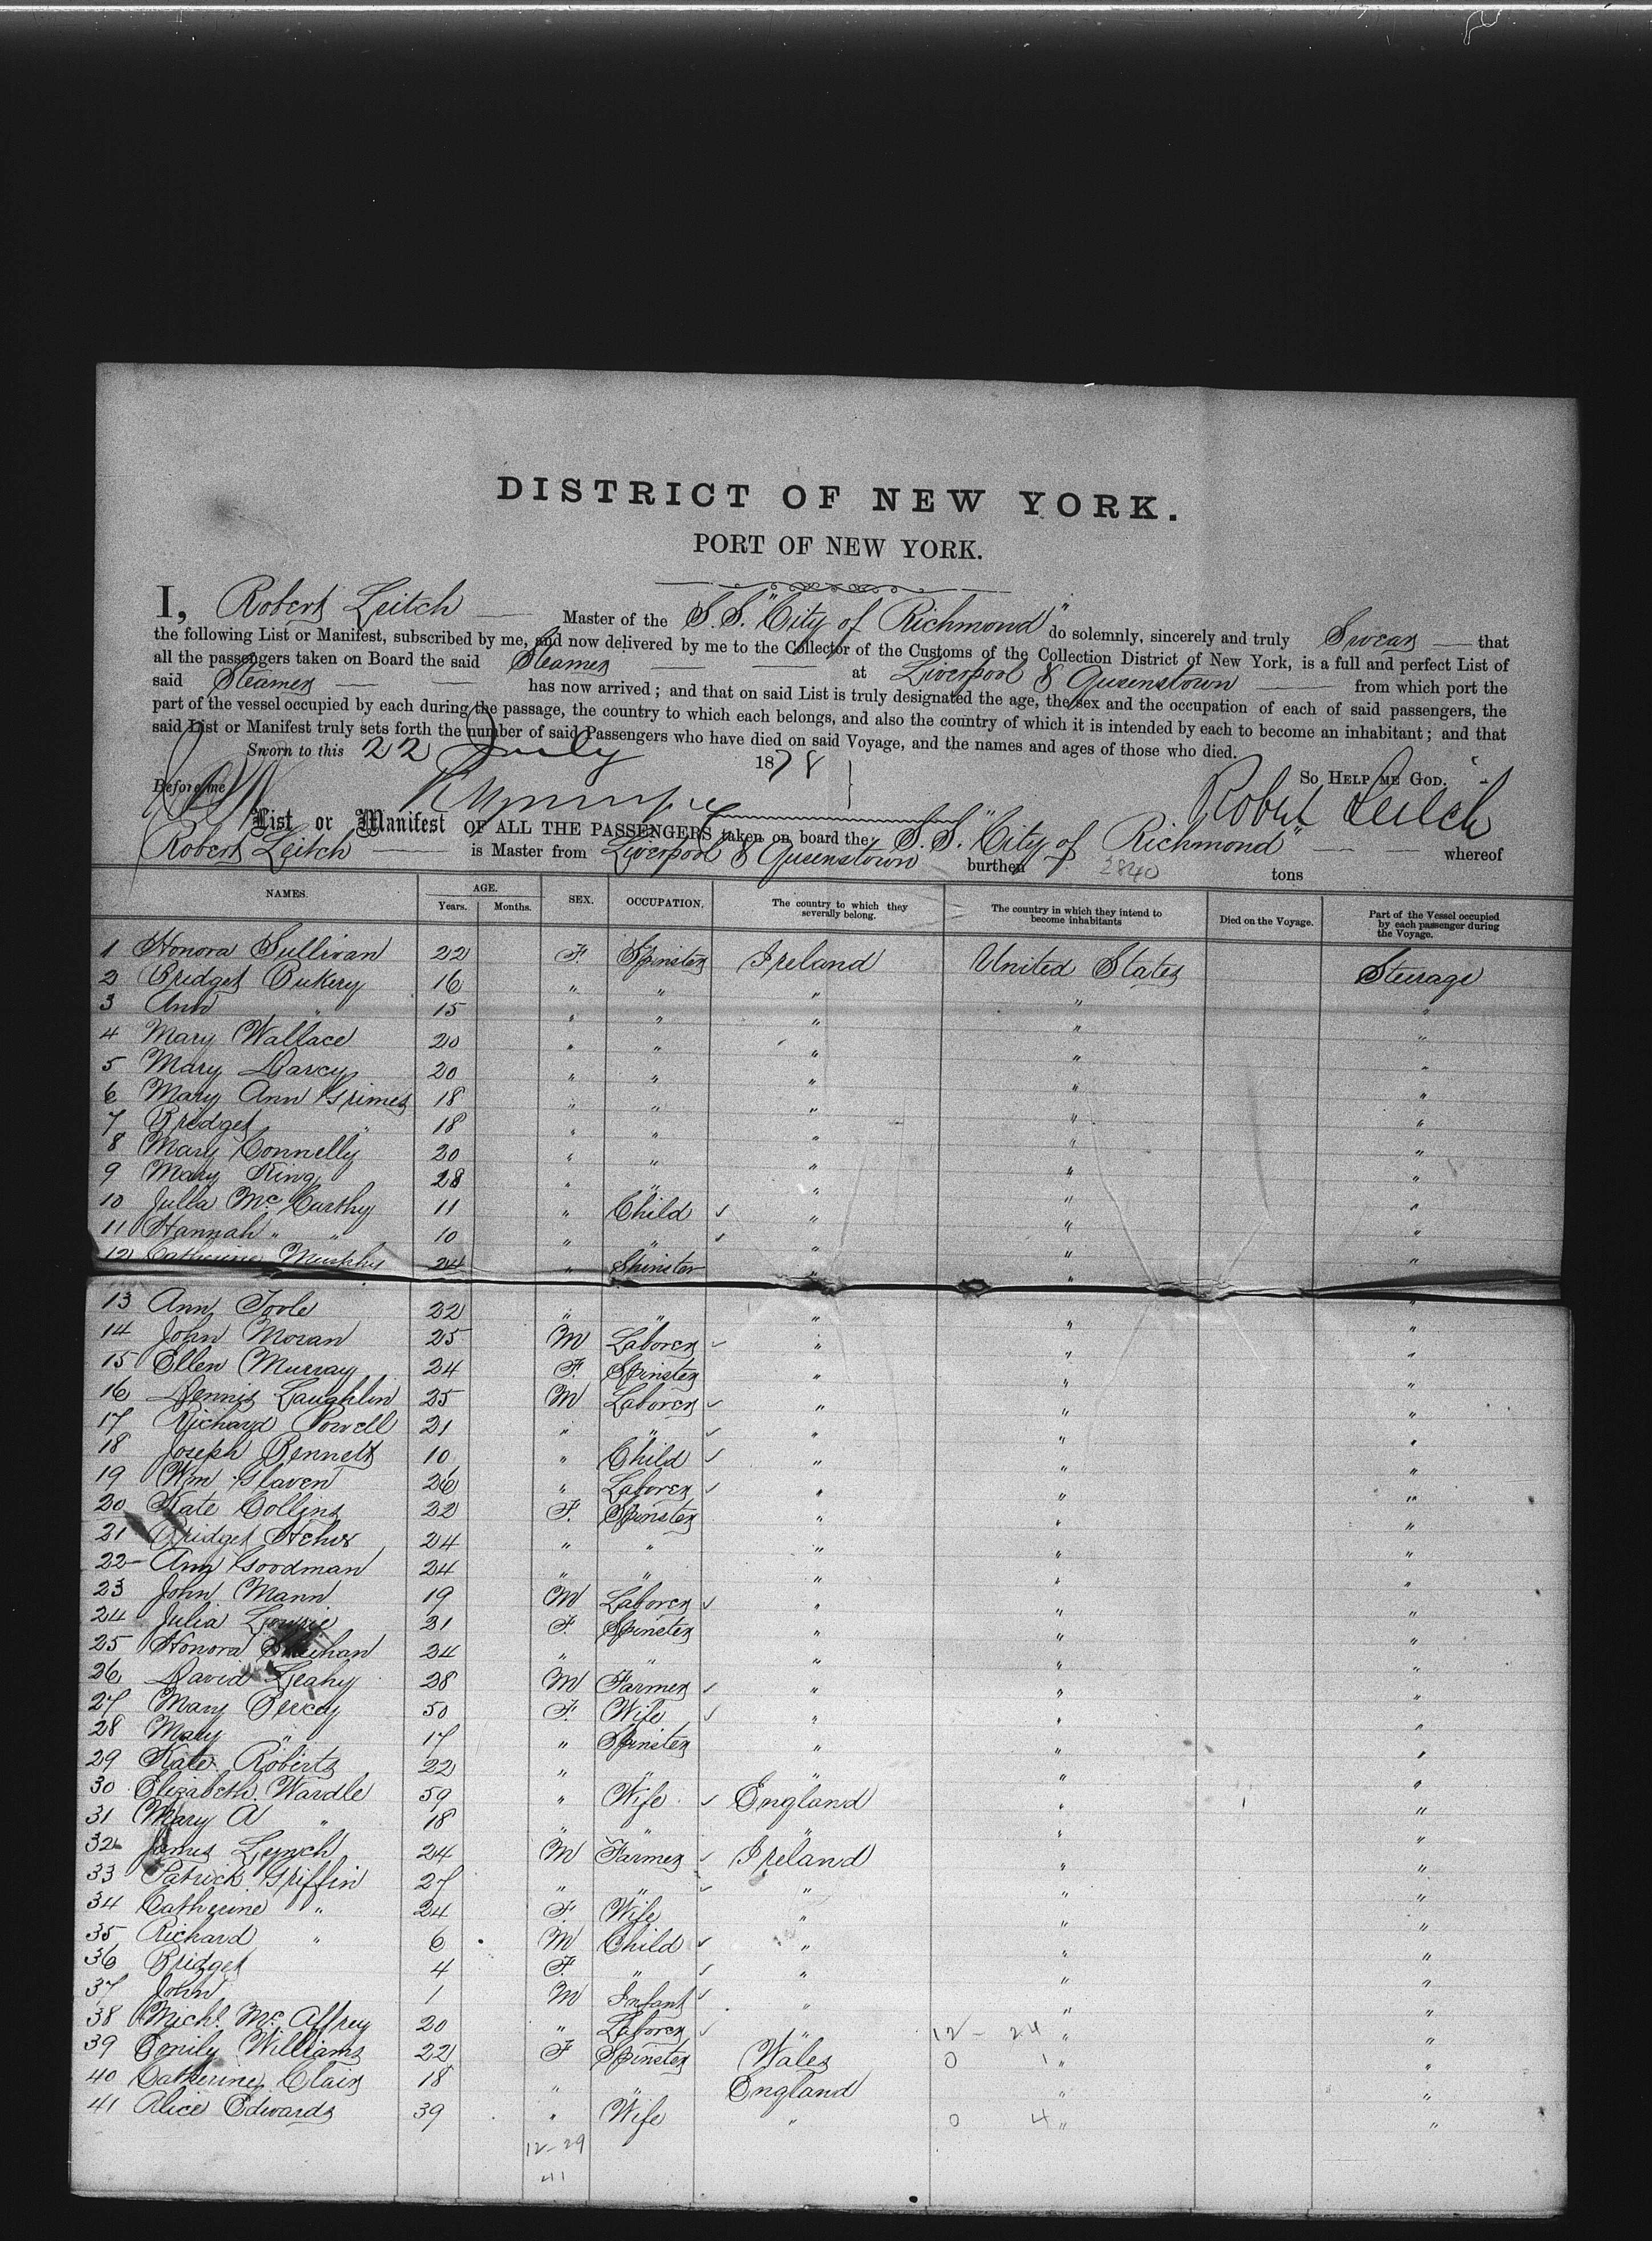 DISTRICT OF NEW YORK.
PORT OF NEW YORK.
I, Robert Leitch Master of the S.S. "City of Richmond" do solemnly, sincerely and truly Swear that
the following List or Manifest, subscribed by me, and now delivered by me to the Collector of the Customs of the Collection District of New York, is a full and perfect List of
all the passengers taken on Board the said Steamer at Liverpool & Queenstown from which port the
said Steamer has now arrived; and that on said List is truly designated the age, the sex and the occupation of each of said passengers, the
part of the vessel occupied by each during the passage, the country to which each belongs, and also the country of which it is intended by each to become an inhabitant; and that
said List or Manifest truly sets forth the number of said Passengers who have died on said Voyage, and the names and ages of those who died.
Sworn to this 22 July 1878
So Help me God.
Before me
Robert Leitch
List or Manifest OF ALL THE PASSENGERS taken on board the S.S. "City of Richmond" whereof
Robert Leitch is Master from Liverpool & Queenstown burthen 2840 tons
NAMES. AGE. Years. Months. SEX. OCCUPATION. The country to which they severally belong. The country in which they intend to become inhabitants Died on the Voyage. Part of the Vessel occupied by each passenger during the Voyage.
1 Honora Sullivan 22 F. Spinster Ireland United States Steerage
2 Bridget 16 " " " " "
3 Ann " 15 " " " " "
4 Mary Wallace 20 " " " " "
5 Mary Darcy 20 " " " " "
6 Mary Ann Grimes 18 " " " " "
7 Bridget " 18 " " " " "
8 Mary Connelly 20 " " " " "
9 Mary King 28 " " " " "
10 Julia Mc Carthy 11 " Child " " "
11 Hannah " " 10 " " " " "
12 Catherine Murphy 24 " Spinster " " "
13 Ann Toole 22 " " " " "
14 John Moran 25 M Laborer " " "
15 Ellen Murray 24 F. Spinster " " "
16 Dennis Laughlin 25 M Laborer " " "
17 Richard Powell 21 " " " " "
18 Joseph Bennett 10 " Child " " "
19 Wm Glaven 26 " Laborer " " "
20 Kate Collins 22 F. Spinster " " "
21 Bridget 24 " " " " "
22 Ann Goodman 24 " " " " "
23 John Mann 19 M Laborer " " "
24 Julia 21 F. Spinster " " "
25 Honora 24 " " " " "
26 David Leahy 28 M Farmer " " "
27 Mary 50 F. Wife " " "
28 Mary " 17 " Spinster " " "
29 Kate Roberts 22 " " " " "
30 Elizabeth Wardle 59 " Wife England " "
31 Mary A " 18 " " " " "
32 James Lynch 24 M Farmer Ireland " "
33 Patrick Griffin 27 " " " " "
34 Catherine " 24 F. Wife " " "
35 Richard " 6 M Child " " "
36 Bridget 4 F. " " " "
37 John 1 M Infant " " "
38 Michl. Mc Affrey 20 " Laborer " 12 - 24 " "
39 Emily Williams 22 F Spinster Wales 0 1 " "
40 Catherine Clair 18 " " England " "
41 Alice Edwards 39 " Wife " 0 4 " "
12-29
41